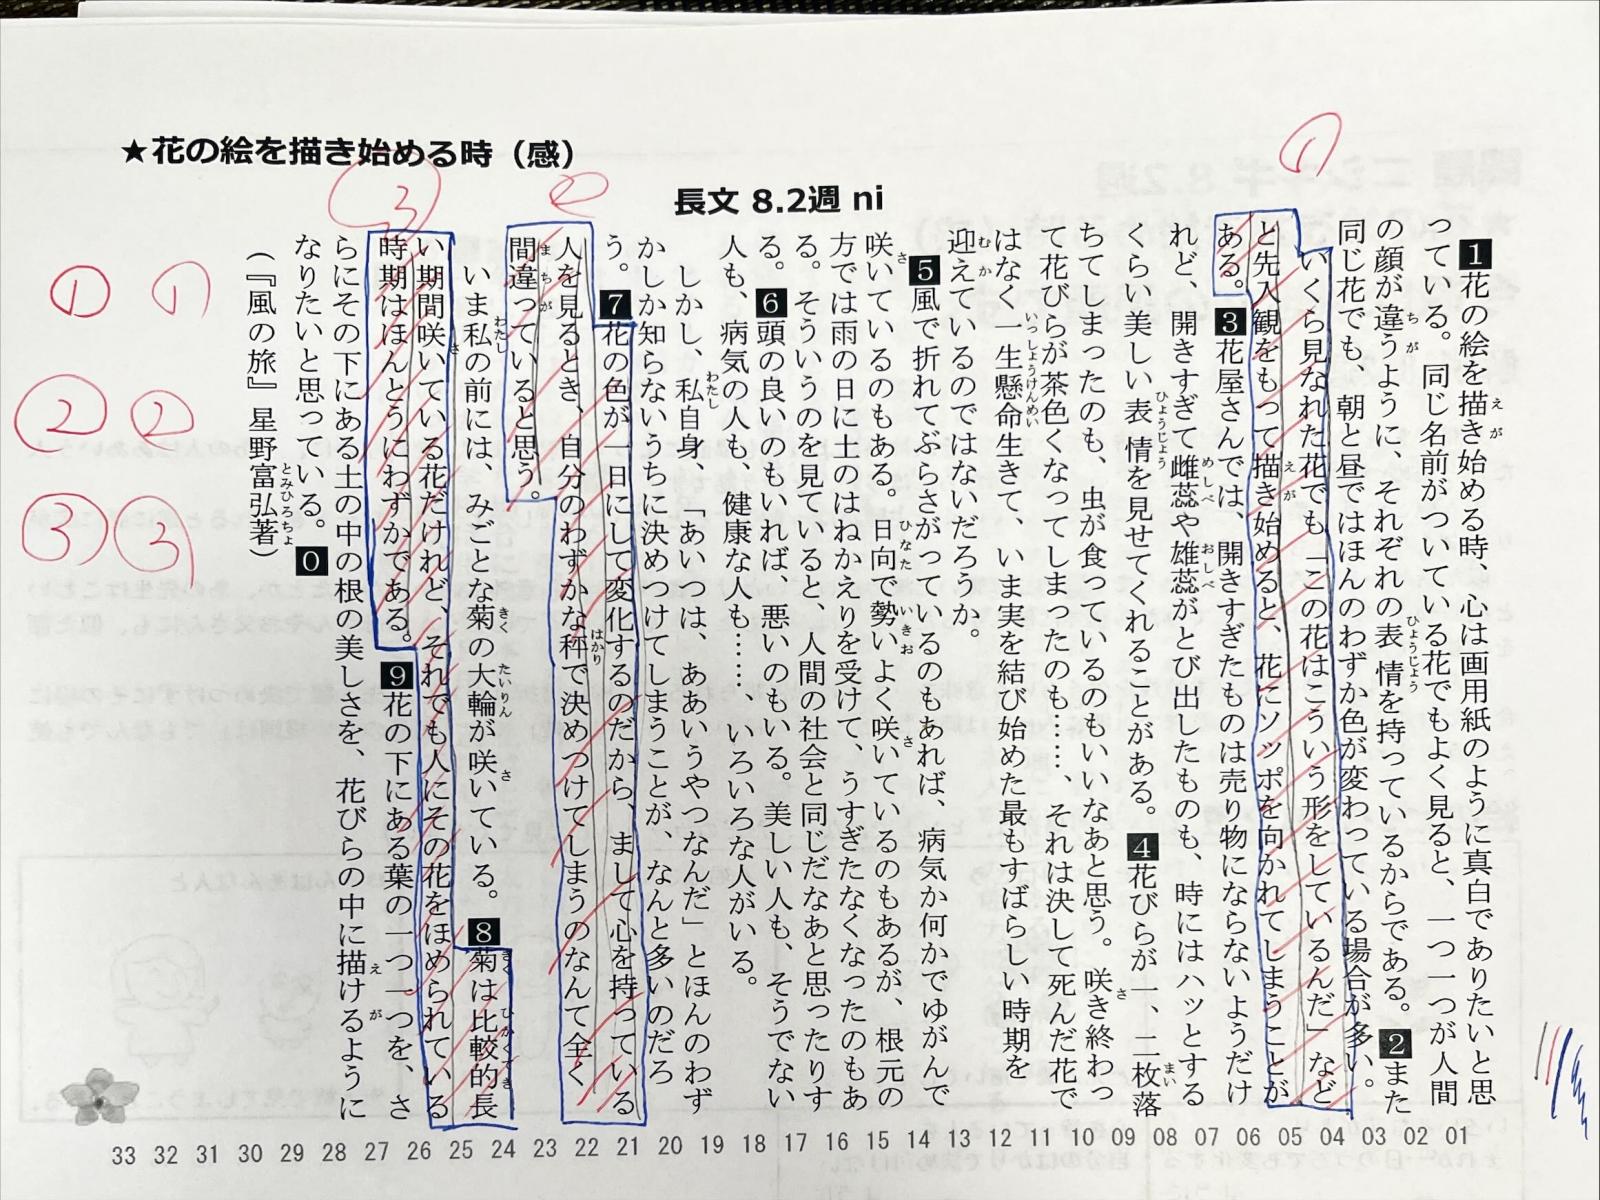 ★花の絵を描き始める時（感）
長文 8.2週 ni
1花の絵を描き始める時、心は画用紙のように真白でありたいと思
っている。同じ名前がついている花でもよく見ると、一つ一つが人間
の顔が違うように、それぞれの表情を持っているからである。2また
同じ花でも、朝と昼ではほんのわずか色が変わっている場合が多い。
いくら見なれた花でも「この花はこういう形をしているんだ」など
と先入観をもって描き始めると、花にソッポを向かれてしまうことが
ある。3花屋さんでは、開きすぎたものは売り物にならないようだけ
れど、開きすぎて雌蕊や雄蕊がとび出したものも、時にはハッとする
くらい美しい表情を見せてくれることがある。4花びらが一、二枚落
ちてしまったのも、虫が食っているのもいいなあと思う。咲き終わっ
て花びらが茶色くなってしまったのも……、それは決して死んだ花で
はなく一生懸命生きて、いま実を結び始めた最もすばらしい時期を
迎えているのではないだろうか。
5風で折れてぶらさがっているのもあれば、病気か何かでゆがんで
咲いているのもある。日向で勢いよく咲いているのもあるが、根元の
方では雨の日に土のはねかえりを受けて、うすぎたなくなったのもあ
る。そういうのを見ていると、人間の社会と同じだなあと思ったりす
る。6頭の良いのもいれば、悪いのもいる。美しい人も、そうでない
人も、病気の人も、健康な人も……、いろいろな人がいる。
しかし、私自身、「あいつは、ああいうやつなんだ」とほんのわず
かしか知らないうちに決めつけてしまうことが、なんと多いのだろ
う。7花の色が一日にして変化するのだから、まして心を持っている
人を見るとき、自分のわずかな秤で決めつけてしまうのなんて全く
間違っていると思う。
いま私の前には、みごとな菊の大輪が咲いている。8菊は比較的長
い期間咲いている花だけれど、それでも人にその花をほめられている
時期はほんとうにわずかである。9花の下にある葉の一つ一つを、さ
らにその下にある土の中の根の美しさを、花びらの中に描けるように
なりたいと思っている。0
（『風の旅』星野富弘著）
えが
ちが
ひょうじょう
えが
めしべ
おしべ
ひょうじょう
まい
さ
いっしょうけんめい
むか
さ
ひなた
いきお
さ
わたし
はかり
まちが
わたし
きく
たいりん
さ
きく
ひかくてき
さ
えが
とみひろちょ
33 32 31 30 29 28 27 26 25 24 23 22 21 20 19 18 17 16 15 14 13 12 11 10 09 08 07 06 05 04 03 02 01
①
②
③
① ①
② ②
③ ③